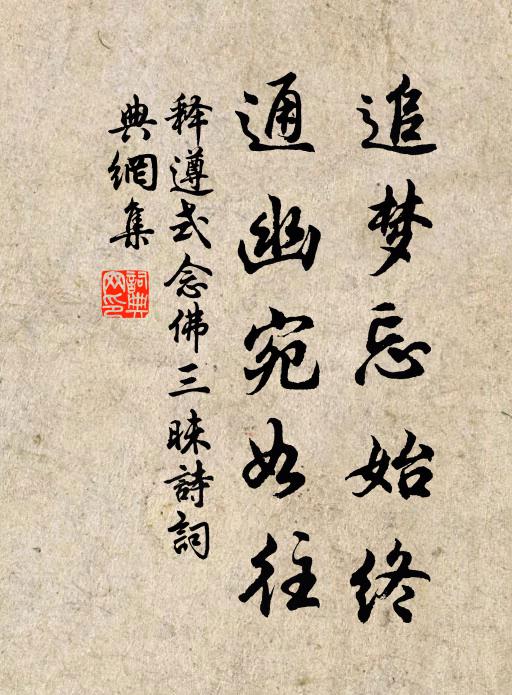 追梦忘始终
通幽宛如往
释遵式念佛三昧詩詞
典網集
詞典
网印